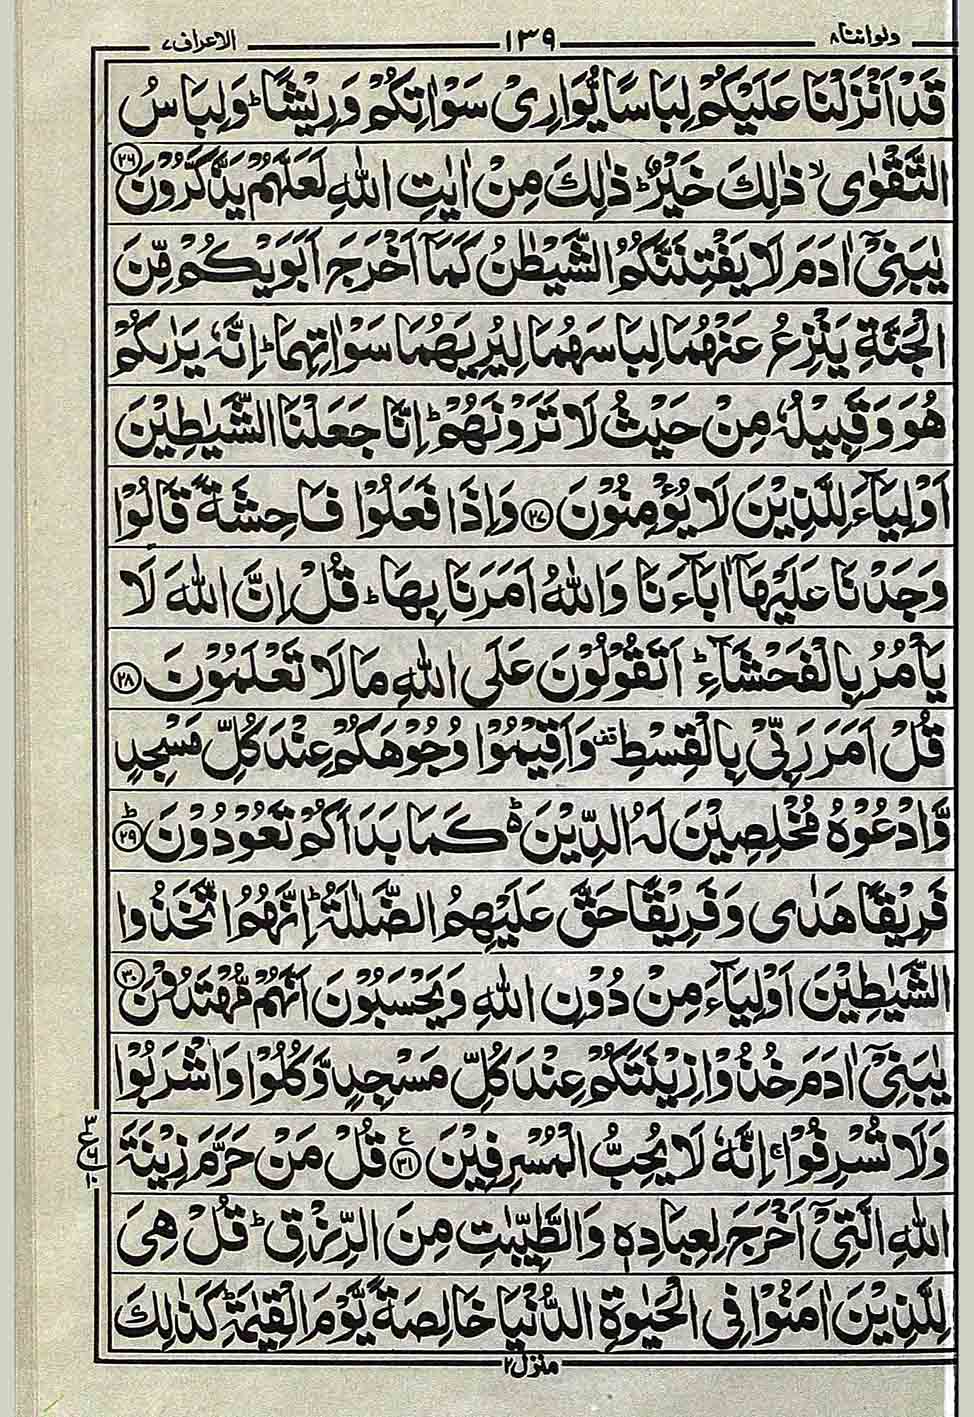 ولواننا ۸ ۱۳۹ الاعراف ۷
قَدْ اَنْزَلْنَا عَلَيْكُمْ لِبَاسًا يُّوَارِىْ سَوْاٰتِكُمْ وَرِيْشًا ؕ وَلِبَاسُ
التَّقْوٰى ۙ ذٰلِكَ خَيْرٌ ؕ ذٰلِكَ مِنْ اٰيٰتِ اللّٰهِ لَعَلَّهُمْ يَذَّكَّرُوْنَ ۲۶
يٰبَنِىْٓ اٰدَمَ لَا يَفْتِنَنَّكُمُ الشَّيْطٰنُ كَمَاۤ اَخْرَجَ اَبَوَيْكُمْ مِّنَ
الْجَنَّةِ يَنْزِعُ عَنْهُمَا لِبَاسَهُمَا لِيُرِيَهُمَا سَوْاٰتِهِمَا ؕ اِنَّهٗ يَرٰىكُمْ
هُوَ وَقَبِيْلُهٗ مِنْ حَيْثُ لَا تَرَوْنَهُمْ ؕ اِنَّا جَعَلْنَا الشَّيٰطِيْنَ
اَوْلِيَآءَ لِلَّذِيْنَ لَا يُؤْمِنُوْنَ ۲۷ وَاِذَا فَعَلُوْا فَاحِشَةً قَالُوْا
وَجَدْنَا عَلَيْهَاۤ اٰبَآءَنَا وَاللّٰهُ اَمَرَنَا بِهَا ؕ قُلْ اِنَّ اللّٰهَ لَا
يَاْمُرُ بِالْفَحْشَآءِ ؕ اَتَقُوْلُوْنَ عَلَى اللّٰهِ مَا لَا تَعْلَمُوْنَ ۲۸
قُلْ اَمَرَ رَبِّىْ بِالْقِسْطِ قف وَاَقِيْمُوْا وُجُوْهَكُمْ عِنْدَ كُلِّ مَسْجِدٍ
وَّادْعُوْهُ مُخْلِصِيْنَ لَهُ الدِّيْنَ ؕ كَمَا بَدَاَكُمْ تَعُوْدُوْنَ ؕ ۲۹
فَرِيْقًا هَدٰى وَفَرِيْقًا حَقَّ عَلَيْهِمُ الضَّلٰلَةُ ؕ اِنَّهُمُ اتَّخَذُوا
الشَّيٰطِيْنَ اَوْلِيَآءَ مِنْ دُوْنِ اللّٰهِ وَيَحْسَبُوْنَ اَنَّهُمْ مُّهْتَدُوْنَ ۳۰
يٰبَنِىْٓ اٰدَمَ خُذُوْا زِيْنَتَكُمْ عِنْدَ كُلِّ مَسْجِدٍ وَّكُلُوْا وَاشْرَبُوْا
وَلَا تُسْرِفُوْا ۚ اِنَّهٗ لَا يُحِبُّ الْمُسْرِفِيْنَ ۳۱ ع قُلْ مَنْ حَرَّمَ زِيْنَةَ
۳ ع ۶ ۱۰
اللّٰهِ الَّتِىْۤ اَخْرَجَ لِعِبَادِهٖ وَالطَّيِّبٰتِ مِنَ الرِّزْقِ ؕ قُلْ هِىَ
لِلَّذِيْنَ اٰمَنُوْا فِى الْحَيٰوةِ الدُّنْيَا خَالِصَةً يَّوْمَ الْقِيٰمَةِ ؕ كَذٰلِكَ
منزل ۲